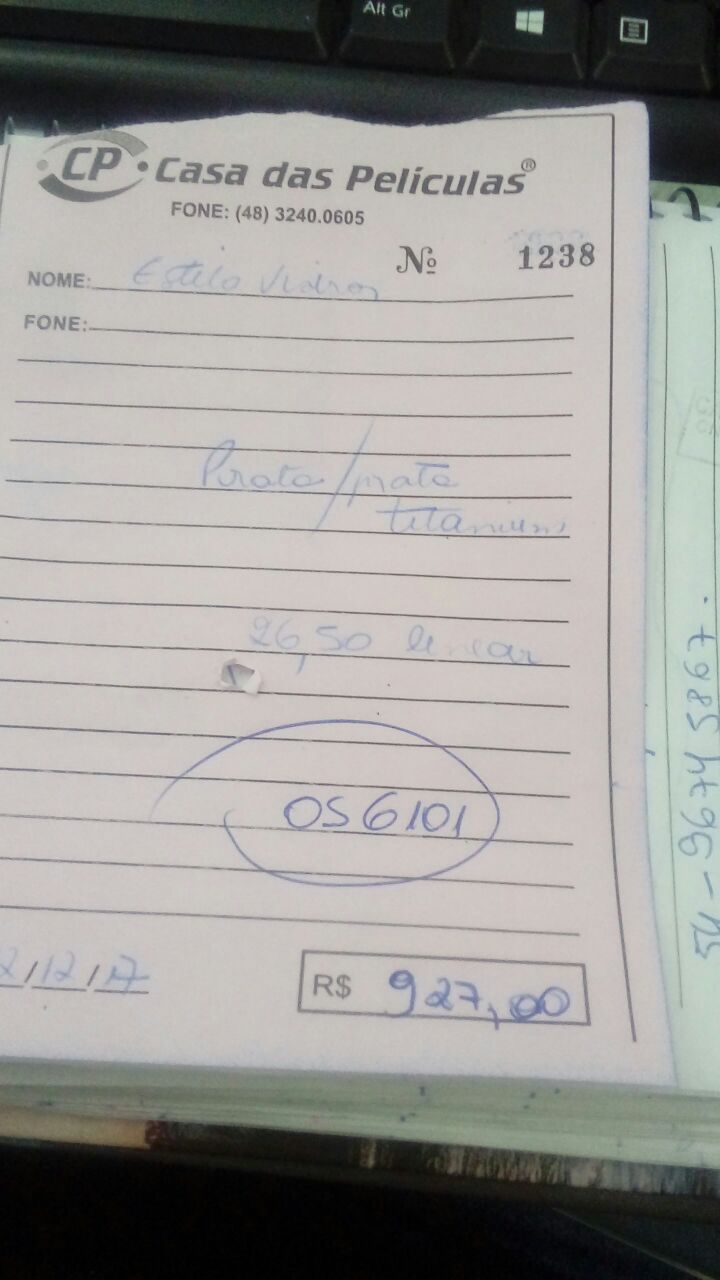 Alt Gr
CP Casa das Películas®
FONE: (48) 3240.0605
Nº 1238
NOME: Estilo Vidros
FONE:
Prata/prata
titanium
26,50 linear
OS 6101
2/12/17
R$ 927,00
54-9674 5867.